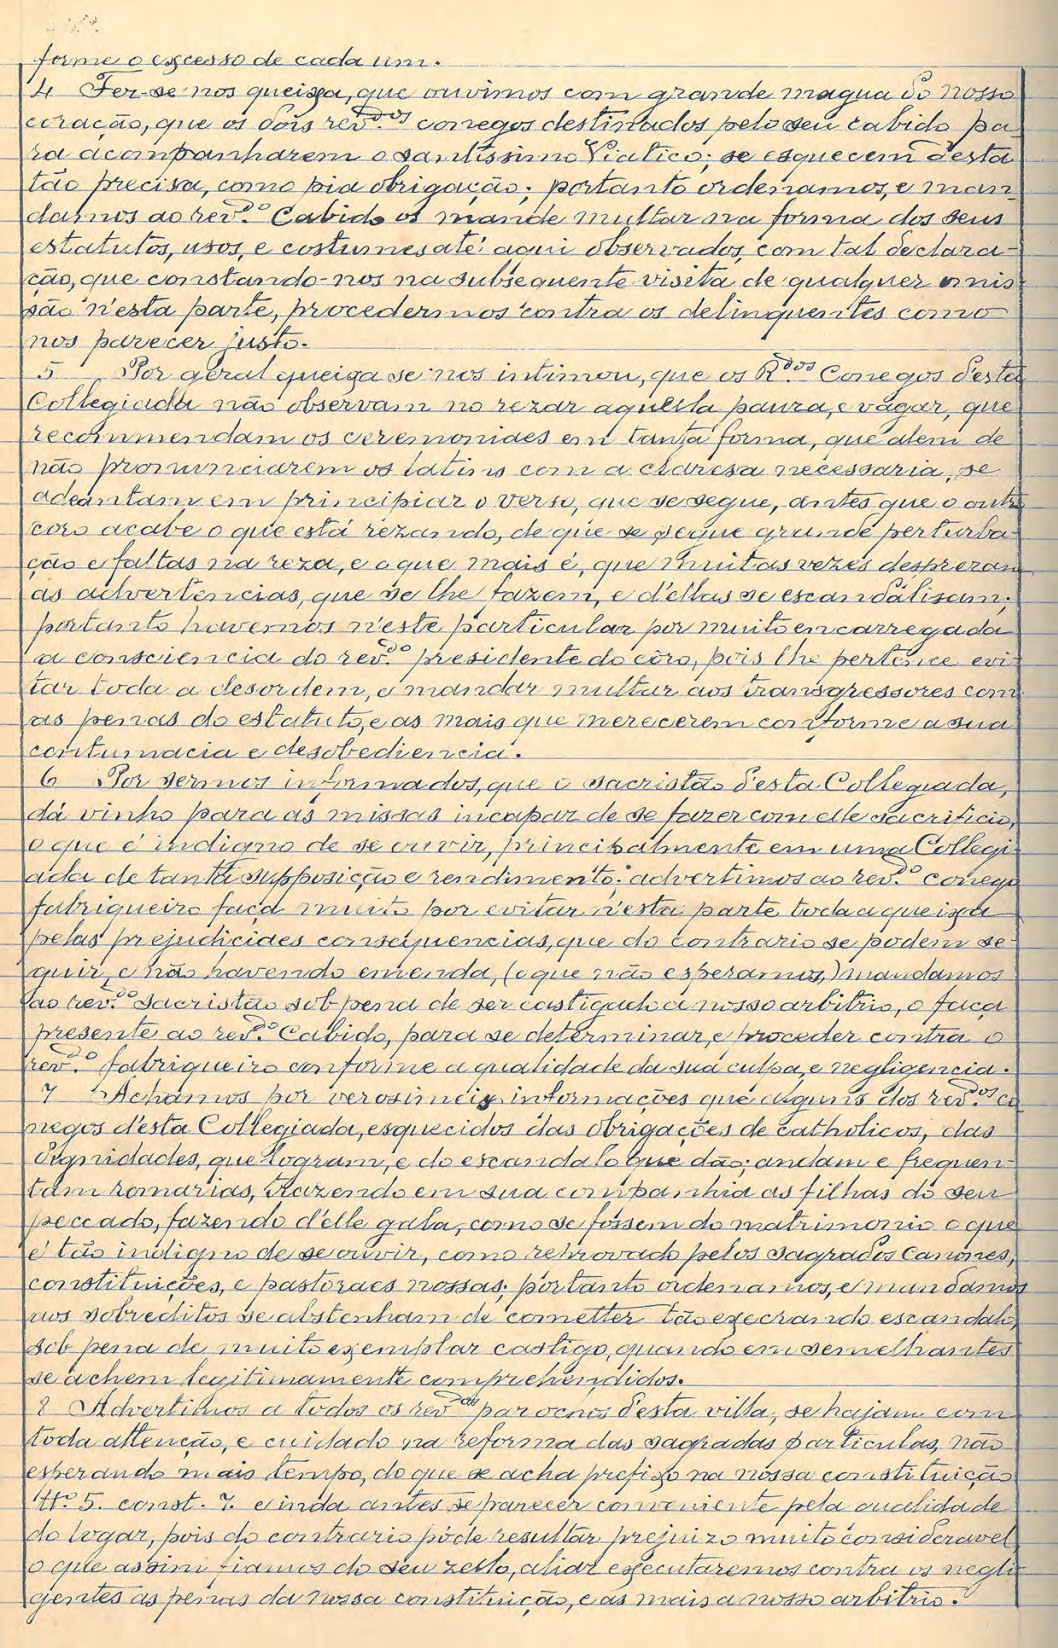 forme o excesso de cada um.
4 Fez-se nos queixa, que ouvimos com grande magua do nosso
coração, que os dois rev.dos conegos destinados pelo seu cabido pa
ra acompanharem o santissimo Viatico; se esquecem d'esta
tão precisa, como pia obrigação; portanto ordenamos, e man
damos ao rev.do Cabido os mande multar na forma dos seus
estatutos, usos, e costumes até aqui observados, com tal declara-
ção, que constando-nos na subsequente visita de qualquer omis
são n'esta parte, procedermos contra os delinquentes como
nos parecer justo.
5 Por geral queixa se nos intimou, que os R.dos Conegos d'esta
Collegiada não observam no rezar aquella pauza, e vagar, que
recommendam os ceremoniaes em tanta forma, que alem de
não pronunciarem os latins com a clareza necessaria, se
adeantam em principiar o verso, que se segue, antes que o outro
coro acabe o que está rezando, de que se segue grande perturba-
ção e faltas na reza, e o que mais é, que muitas vezes despreram
as advertencias, que se lhe fazem, e d'ellas se escandalisam;
portanto havemos n'este particular por muito encarregada
a consciencia do rev.do presidente do côro, pois lhe pertence evi-
tar toda a desordem, e mandar multar aos transgressores com
as penas do estatuto, e as mais que merecerem conforme a sua
contumacia e desobediencia.
6 Por sermos informados, que o sacristão d'esta Collegiada,
dá vinho para as missas incapaz de se fazer com elle sacrificio,
o que é indigno de se ouvir, principalmente em uma Collegi-
ada de tanta supposição e rendimento; advertimos ao rev.do conego
fabriqueiro faça muito por evitar n'esta parte toda a queixa
pelas prejudiciaes consequencias, que do contrario se podem se-
guir, e não havendo emenda, (o que não esperamos,) mandamos
ao rev.do sacristão sob pena de ser castigado a nosso arbitrio, o faça
presente ao rev.do Cabido, para se determinar, e proceder contra o
rev.do fabriqueiro conforme a qualidade da sua culpa, e negligencia.
7 Achamos por verosimeis informações que alguns dos rev.dos co
negos d'esta Collegiada, esquecidos das obrigações de catholicos, das
dignidades, que logram, e do escandalo que dão; andam e frequen-
tam romarias, trazendo em sua companhia as filhas do seu
peccado, fazendo d'elle gala, como se fossem do matrimonio o que
é tão indigno de se ouvir, como reprovado pelos sagrados Canones,
constituições, e pastoraes nossas; portanto ordenamos, e mandamos
aos sobreditos se abstenham de cometter tão execrando escandalo,
sob pena de muito exemplar castigo, quando em semelhantes
se achem legitimamente comprehendidos.
8 Advertimos a todos os rev.dos parochos d'esta villa, se hajam com
toda attenção, e cuidado na reforma das sagradas particulas, não
esperando mais tempo, do que se acha prefixo na nossa constituição
tt.o 5. const. 7. e inda antes se parecer conveniente pela qualidade
do logar, pois do contrario póde resultar prejuizo muito consideravel
o que assim fiamos do seu zello, aliaz executaremos contra os negli
gentes as penas da nossa constituição, e as mais a nosso arbitrio.